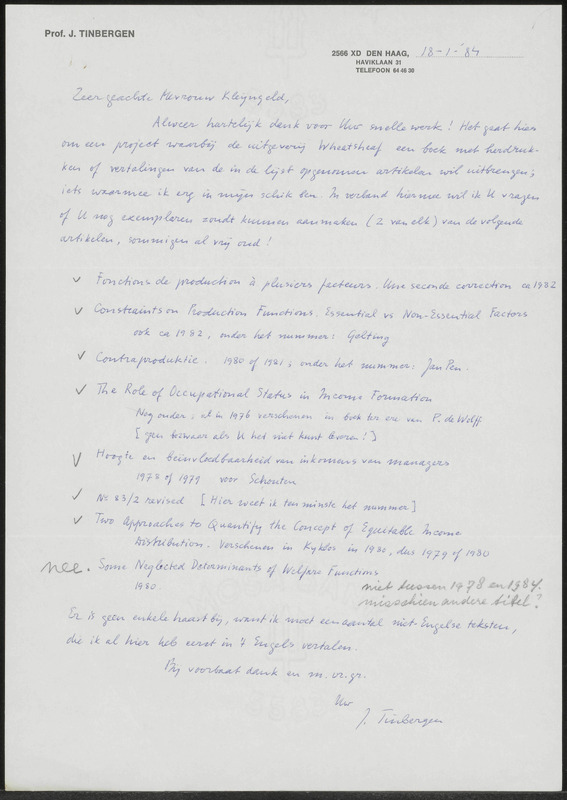 Prof. J. TINBERGEN
2566 XD DEN HAAG, 18-1-'84
HAVIKLAAN 31
TELEFOON 64 46 30
Zeer geachte Mevrouw Kleijngeld,
Alweer hartelijk dank voor Uw snelle werk! Het gaat hier
om een project waarbij de uitgeverij Wheatsheaf een boek met herdruk-
ken of vertalingen van de in de lijst opgenomen artikelen wil uitbrengen;
iets waarmee ik erg in mijn schik ben. In verband hiermee wil ik U vragen
of U nog exemplaren zoudt kunnen aanmaken (2 van elk) van de volgende
artikelen, sommigen al vrij oud!
✓ Fonctions de production à plusiers facteurs. Une seconde correction ca 1982
✓ Constraints on Production Functions. Essential vs Non-Essential Factors
ook ca 1982, onder het nummer: Galtung
✓ Contraproduktie. 1980 of 1981; onder het nummer: Jan Pen.
✓ The Role of Occupational Status in Income Formation
Nog ouder; al in 1976 verschenen in boek ter ere van P. de Wolff
[geen bezwaar als U het niet kunt leveren!]
✓ Hoogte en beïnvloedbaarheid van inkomens van managers
1978 of 1979 voor Schouten
✓ No 83/2 revised [Hier weet ik tenminste het nummer]
✓ Two Approaches to Quantify the Concept of Equitable Income
Distribution. Verschenen in Kyklos in 1980, dus 1979 of 1980
nee. Some Neglected Determinants of Welfare Functions
1980
niet tussen 1978 en 1984.
misschien andere titel?
Er is geen enkele haast bij, want ik moet een aantal niet-Engelse teksten,
die ik al hier heb eerst in 't Engels vertalen.
Bij voorbaat dank en m. vr. gr.
Uw
J. Tinbergen